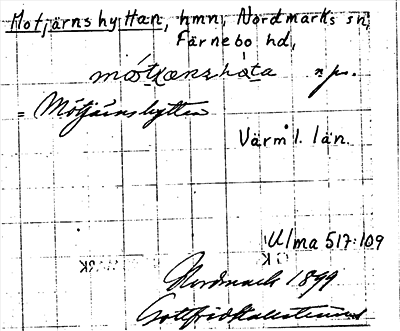 Motjärnshyttan, hmn, Nordmarks sn,
Färnebo hd,
n pr.
= Mötjärnshyttan
Värml. län.
Ulma 517:109
Nordmark 1899
Gottfrid Kallstenius